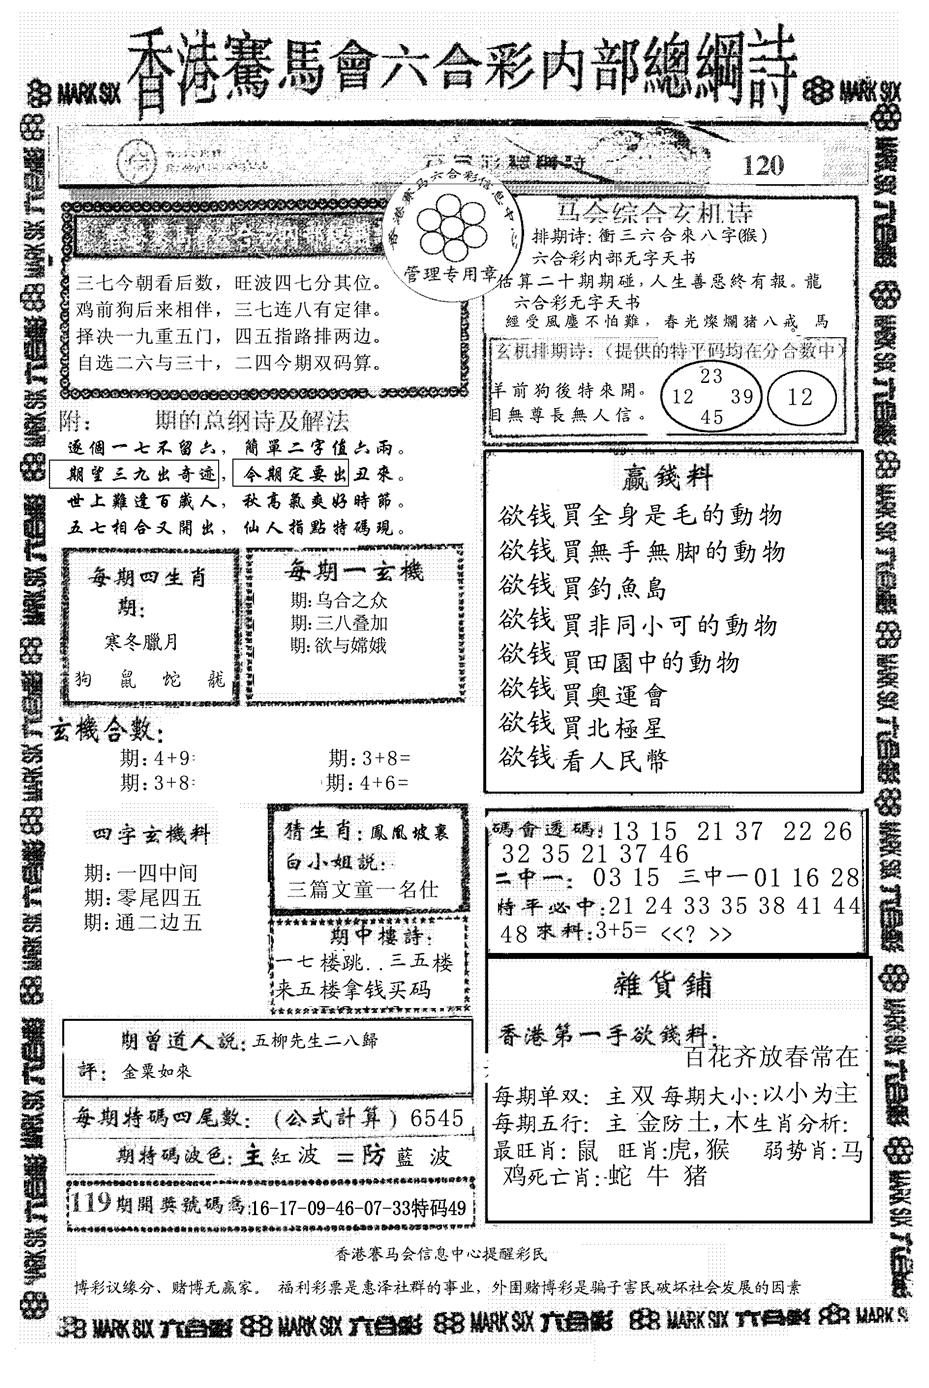 香港賽馬會六合彩内部總綱詩
MARK SIX
MARK SIX
120
香港赛马六合彩信息中
管理专用章
三七今朝看后数，旺波四七分其位。
鸡前狗后来相伴，三七连八有定律。
择决一九重五门，四五指路排两边。
自选二六与三十，二四今期双码算。
马会综合玄机诗
排期诗:衝三六合來八字(猴)
六合彩内部无字天书
估算二十期期碰,人生善惡終有報。龍
六合彩无字天书
經受風塵不怕難，春光燦爛猪八戒。馬
玄机排期诗:（提供的特平码均在分合数中）
羊前狗後特來開。
目無尊長無人信。
23
12 39
45
12
附: 期的总纲诗及解法
逐個一七不留六，簡單二字值六兩。
期望三九出奇迹,今期定要出丑來。
世上難逢百歲人，秋高氣爽好時節。
五七相合又開出，仙人指點特碼現。
每期四生肖
期:
寒冬臘月
狗 鼠 蛇 龍
每期一玄機
期:乌合之众
期:三八叠加
期:欲与嫦娥
玄機合數:
期:4+9
期:3+8=
期:3+8
期:4+6=
四字玄機料
期:一四中间
期:零尾四五
期:通二边五
猜生肖:鳳凰坡裏
白小姐説:
三篇文童一名仕
期中樓詩:
一七楼跳..三五楼
来五楼拿钱买码
期曾道人説:五柳先生二八歸
評: 金粟如來
每期特碼四尾數:(公式計算)6545
期特碼波色:主紅波=防藍波
119期開獎號碼爲:16-17-09-46-07-33特码49
贏錢料
欲钱買全身是毛的動物
欲钱買無手無脚的動物
欲钱買釣魚島
欲钱買非同小可的動物
欲钱買田園中的動物
欲钱買奥運會
欲钱買北極星
欲钱看人民幣
碼會透碼:13 15 21 37 22 26
32 35 21 37 46
二中一: 03 15 三中一01 16 28
特平必中:21 24 33 35 38 41 44
48 來料:3+5= <<? >>
雜貨鋪
香港第一手欲錢料:
百花齐放春常在
每期单双: 主双每期大小:以小为主
每期五行: 主 金防土,木生肖分析:
最旺肖:鼠 旺肖:虎,猴 弱势肖:马
鸡死亡肖:蛇 牛 猪
香港赛马会信息中心提醒彩民
博彩议缘分、赌博无赢家。 福利彩票是惠泽社群的事业，外围赌博彩是骗子害民破坏社会发展的因素
MARK SIX 六合彩 MARK SIX 六合彩 MARK SIX 六合彩 MARK SIX 六合彩 MARK SIX